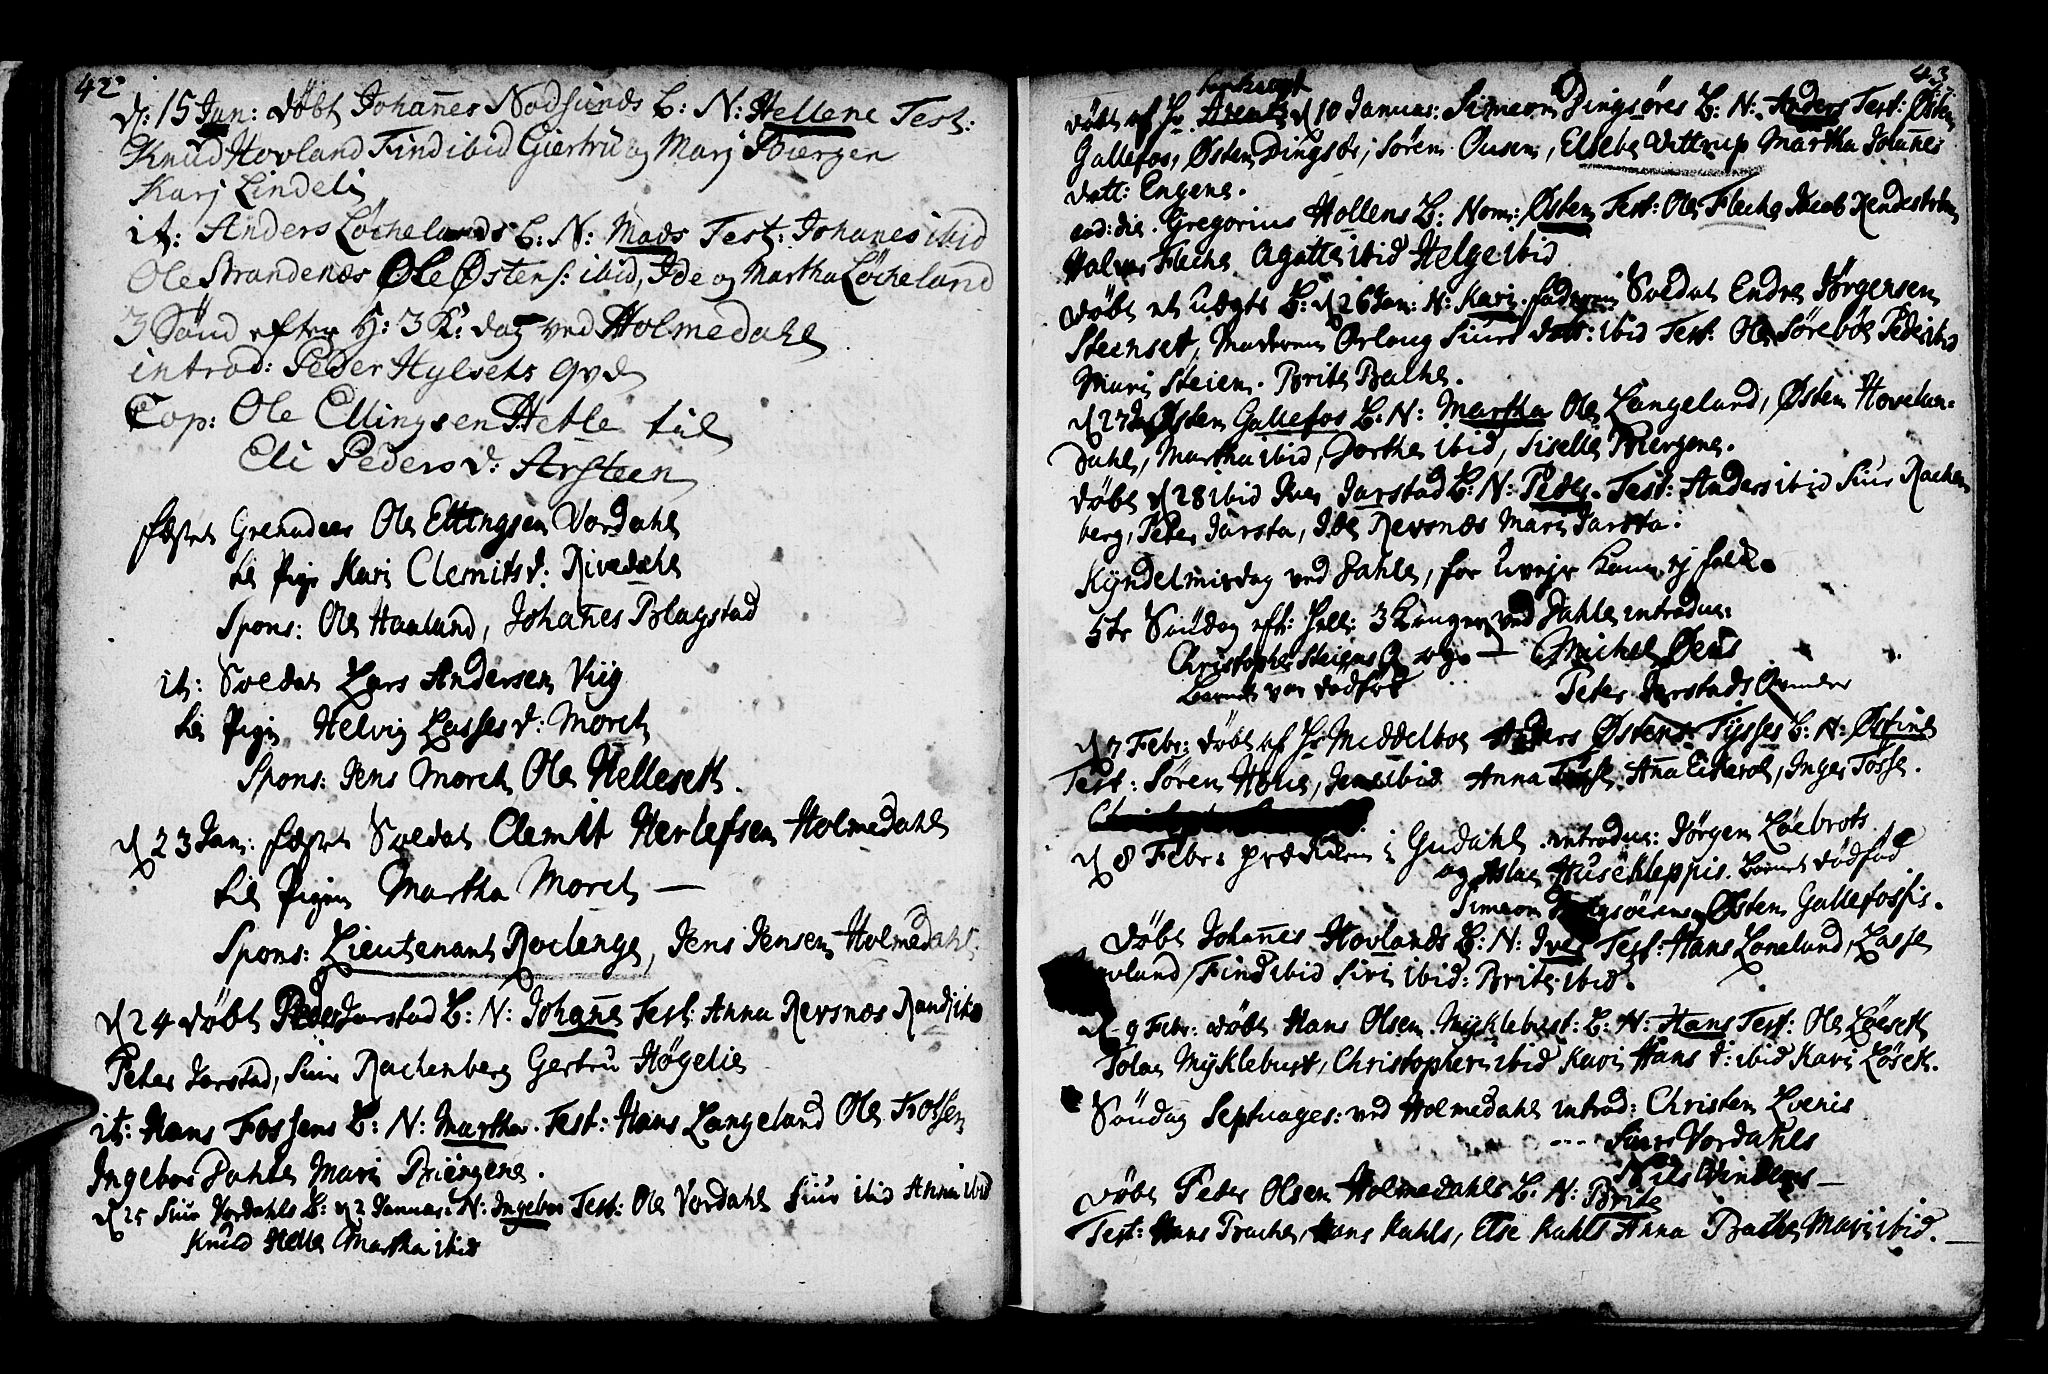 42
d: 15 Jan: døbt Johañes Nodsunds B: N: Hellene Test:
Knud Hovland Find ibid Giertru og Mari Biergen
Karj Lindeli
it: Anders Løchelands B: N: Mads Test: Johanes ibid
Ole Strandenæs Ole Østens: ibid, Ide og Martha Løcheland
3 Sønd efter H: 3 K: dag ved Holmedahl
introd: Peder Hylsets Qvd
Cop: Ole Ellingsen Hetle til
Eli Peders d: Arsteen
fæstet Grenadeer Ole Ellingsen Vordahl
til Pige Kari Clemits d: Rivedahl
Spons: Ole Haaland, Johañes Blagstad
it: Soldat Lars Andersen Viig
til Pigen Helvig Lasses d: Moret
Spons: Jens Moret Ole Hellesett.
d 23 Jan: fæstet Soldat Clemit Herlefsen Holmedahl
til Pigen Martha Moret —
Spons: Lieutenant Roclenge, Jens Jensen Holmedahl
d 24 døbt Peder Jarstad B: N: Johañe Test: Anna Revsnæs Randi ibd
Peter Jarstad, Siur Rachenberg Gertru Høgelie
it: Hans Fossens B: N: Martha. Test: Hans Langeland Ole Fossen
Ingebor Dahle Mari Biergene.
d 25 Siur Vordahls B: d 2 Januar: N: Ingebor Test: Ole Vordahl Siur ibid Anna ibid
Knud Hetle Martha ibid
43
døbt af Hr d 10 Januar: Simeon Dingsøres B: N: Anders Test: Østen
Gallefos, Østen Dingsør, Søren Ousen, Elsebe Vittrup Martha Johañes
datt: Engene.
eod: die. Gregorius Hollens B: Nom: Østen Test: Ole Fleche Jacob
Halvor Fleche Agatte ibid Helge ibid
døbt et uægte B: d 26 Jan: N: Kari. faderen Soldat Endre Jørgensen
Steenset, Moderen Ørlaug Siurs datt: ibid Test: Ole Sørebøe Peder ibid
Mari Steien. Brite Bache.
d 27 Østen Gallefos B: N: Martha Ole Langeland, Østen Hovelan-
Dahle, Martha ibid, Dorthe ibid, Siselle Biergene.
døbt d 28 ibid Iver Jarstad B: N: Peder. Test: Anders ibid Siur Rachen
berg, Peter Jarsta, Ide Revsnæs Mari Jarsta.
Kyndelmisdag ved Dahle, for Uvejr kom ej folk.
5te Søndag eft: Hell: 3 Konger ved Dahle introdu:
Christopher Steiens Q og — Michel Øens
Barnet var dødfød
Peter Jarstads Qvinder
d 7 Febr: døbt af Hr Middelboe Anders Østens: Tysses B: N: Østine
Test: Søren Hole, Jens ibid Anna Tysse Aña Eikerol, Inger Tosse.
d 8 Febr: prædiken i Gudahl introdu: Jørgen Løebrots
og Aslac Husekleppis. Barnet dødfød
Simeon Østen Gallefossis.
døbt Johañes Hovlands B: N: Iver Test: Hans Loneland, Lasse
ovland, Find ibid Siri ibid: Brite ibid.
d 9 Febr: døbt Hans Olsen Myklebust: B: N: Hans Test: Ole Løeset
Tolac Myklebust, Christophen ibid Kari Hans d: ibid Kari Løset.
Søndag Septuages: ved Holmedahl introd: Christen Loenis
---- Siurs Vordahls
Nils Vindens —
døbt Peder Olsen Holmedahls B: N: Brite
Test: Hans Bache, Hans Kahls, Else Kahls Anna Bache Mari ibid. —